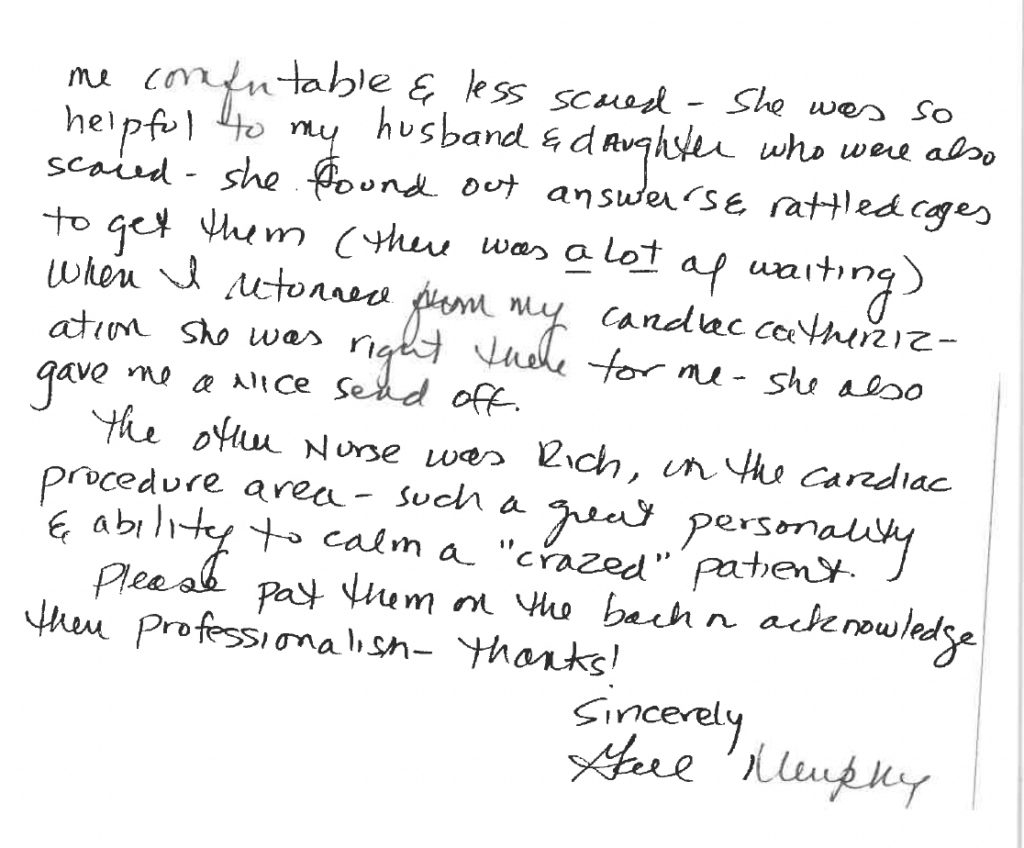 me comfortable & less scared - She was so
helpful to my husband & daughter who were also
scared - she found out answers & rattled cages
to get them (there was a lot of waiting)
When I returned from my cardiac catheriz-
ation she was right there for me - she also
gave me a nice send off.
The other Nurse was Rich, in the cardiac
procedure area - such a great personality
& ability to calm a "crazed" patient.
Please pat them on the back n acknowledge
their professionalism - thanks!
Sincerely
Murphy